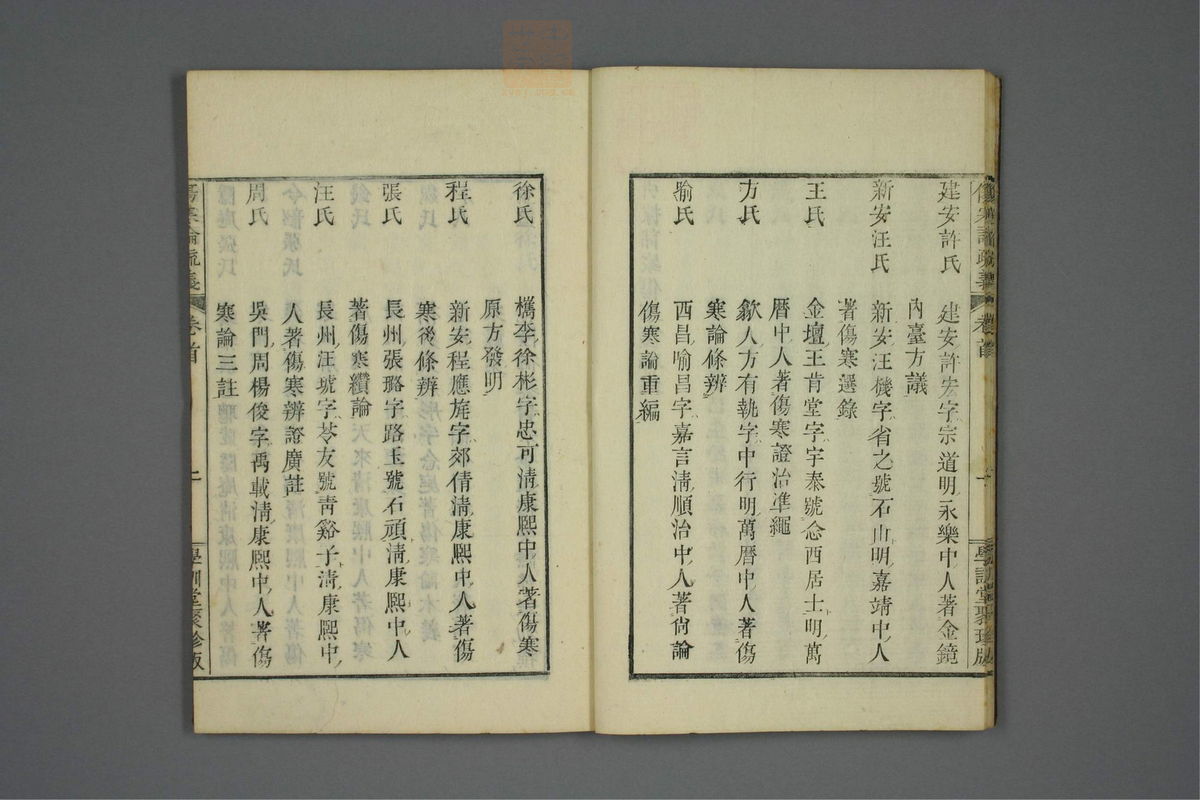 傷寒論疏義 卷首 學訓堂聚珍版
建安許氏 建安許宏字宗道明永樂中人著金鏡
內臺方議
新安汪氏 新安汪機字省之號石山明嘉靖中人
著傷寒選錄
王氏 金壇王肯堂字宇泰號念西居士明萬
曆中人著傷寒證治準繩
方氏 歙人方有執字中行明萬曆中人著傷
寒論條辨
喻氏 西昌喻昌字嘉言淸順治中人著尙論
傷寒論重編
徐氏 檇李徐彬字忠可淸康熙中人著傷寒
原方發明
程氏 新安程應旄字郊倩淸康熙中人著傷
寒後條辨
張氏 長州張璐字路玉號石頑淸康熙中人
著傷寒纘論
汪氏 長州汪琥字苓友號靑谿子淸康熙中
人著傷寒辨證廣註
周氏 吳門周楊俊字禹載淸康熙中人著傷
寒論三註
傷寒論疏義 卷首 二 學訓堂聚珍版